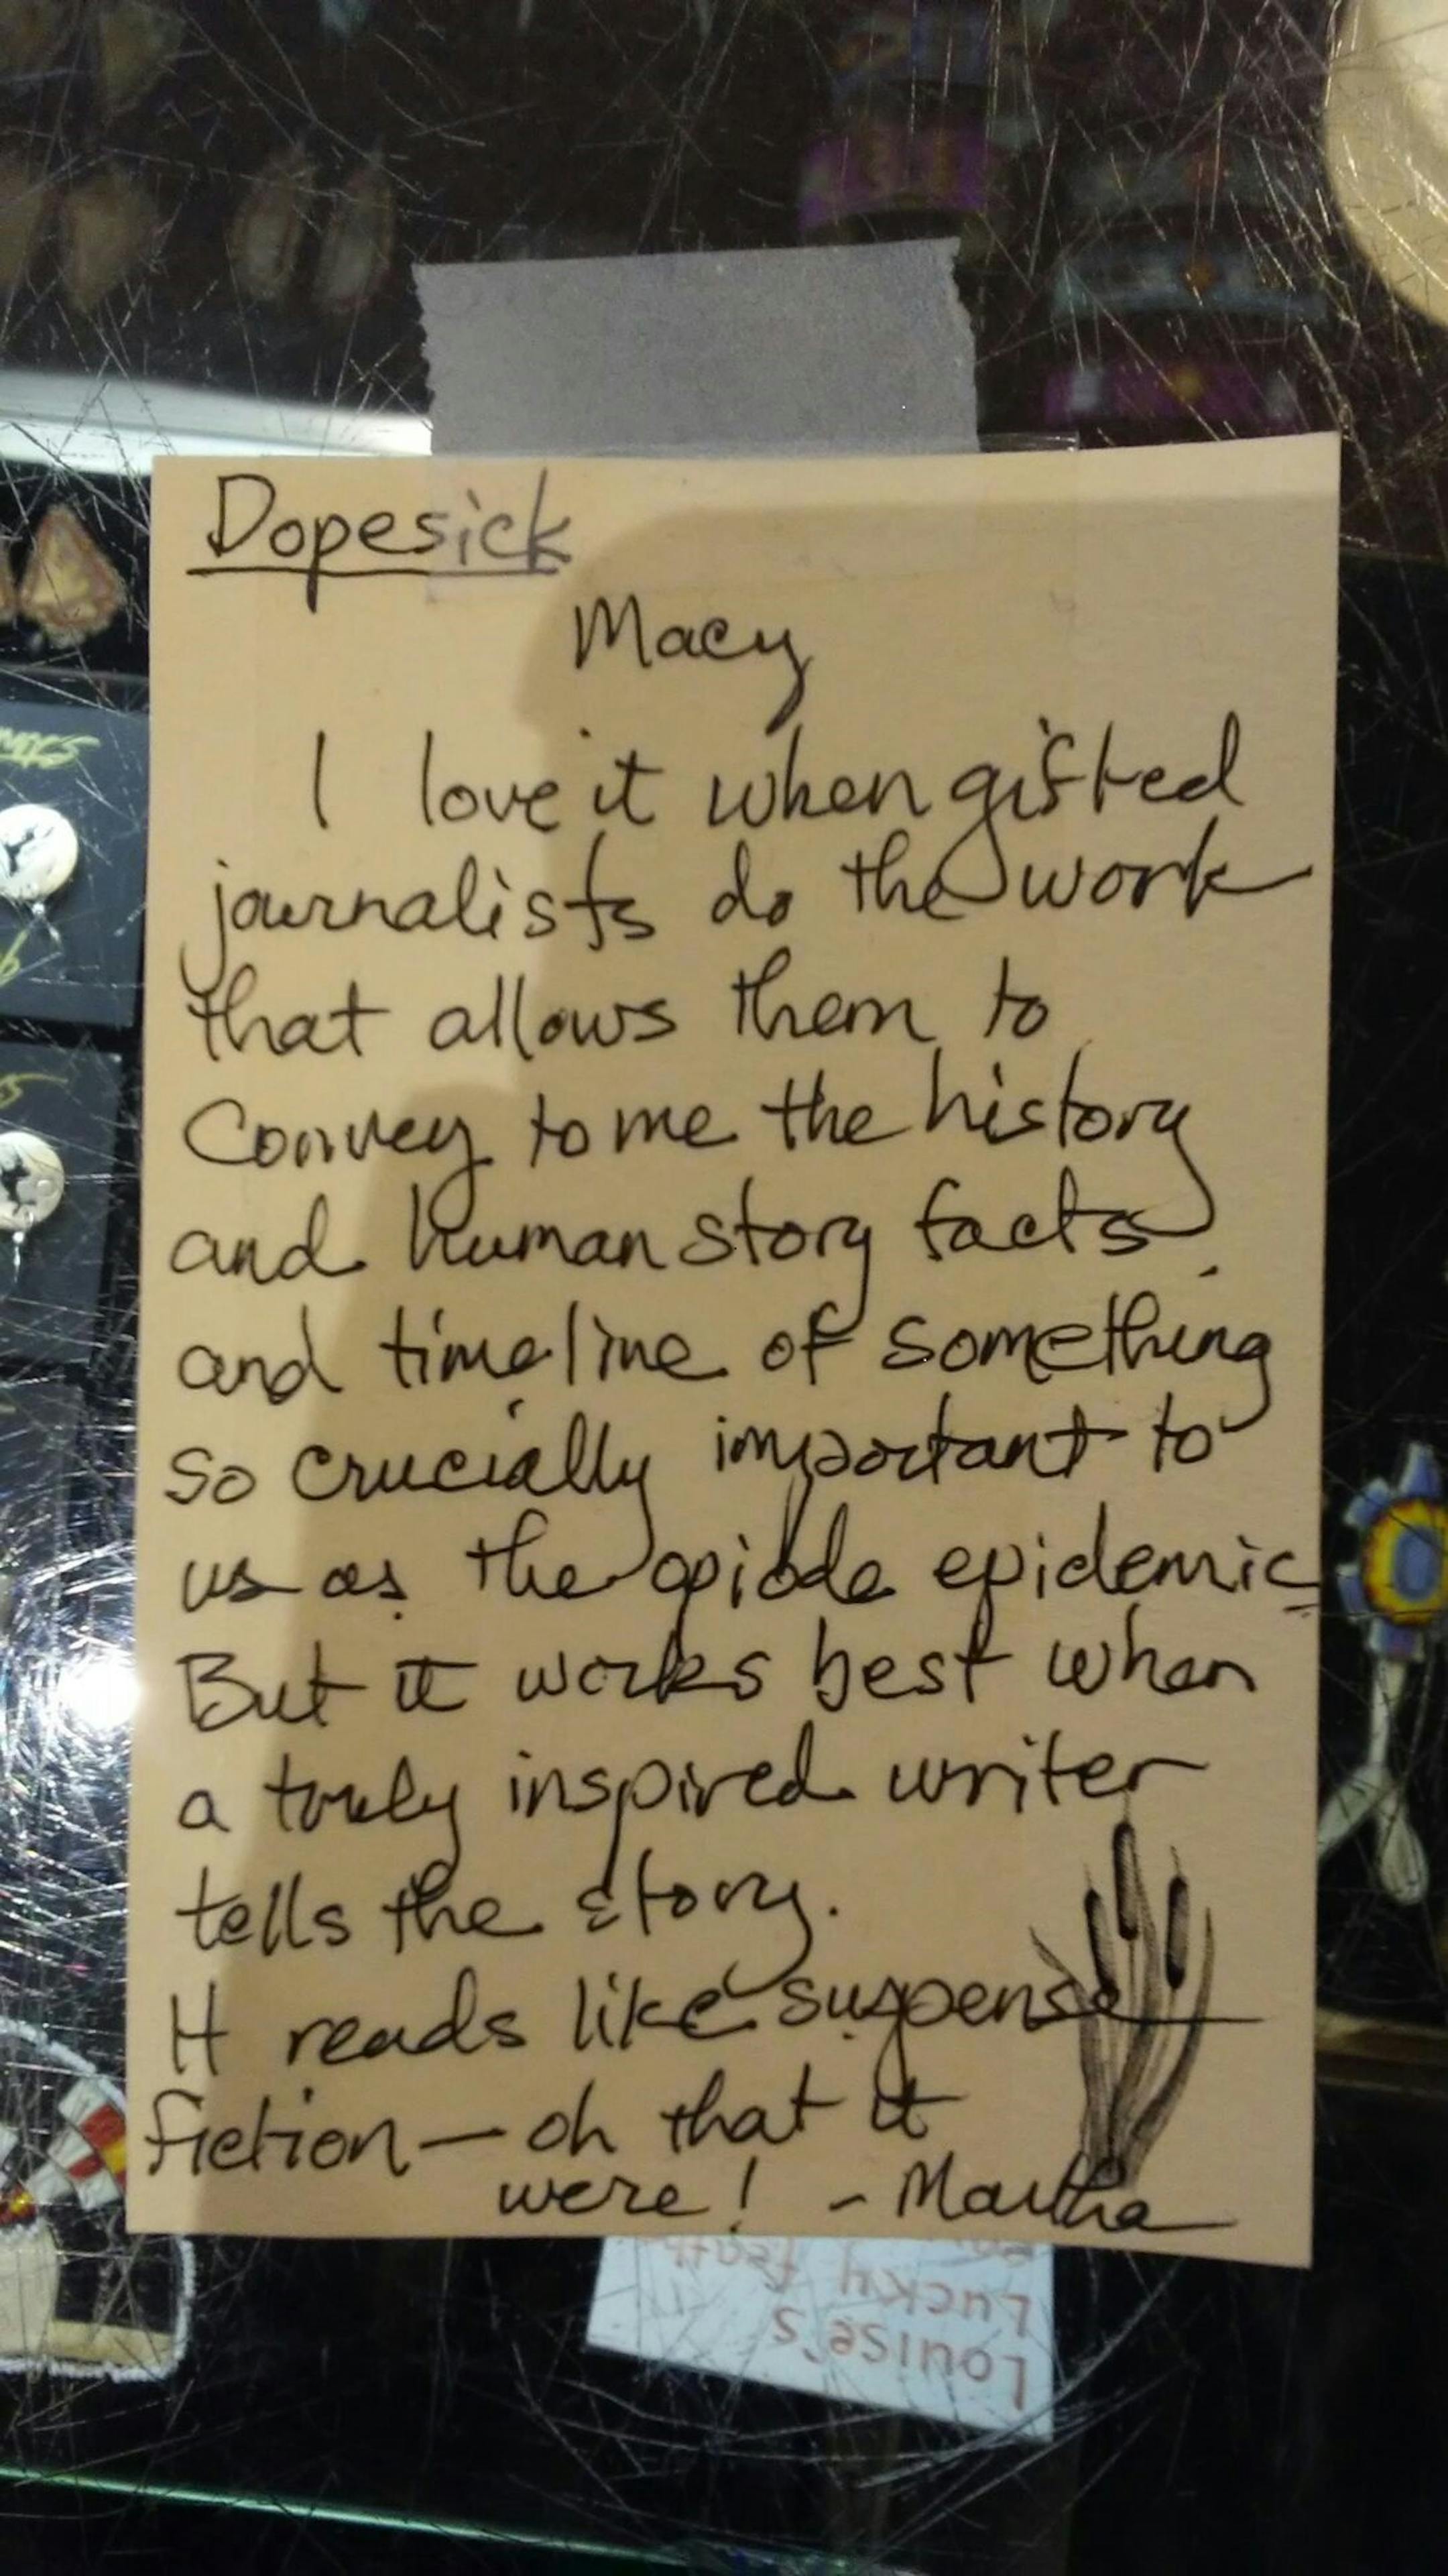 Dopesick
Macy
I love it when gifted
journalists do the work
that allows them to
Convey to me the history
and human story facts
and timeline of something
so crucially important to
us as the opiode epidemic.
But it works best when
a truly inspired writer
tells the story.
It reads like suspense
fiction — oh that it
were! - Martha
Louise's
Lucky